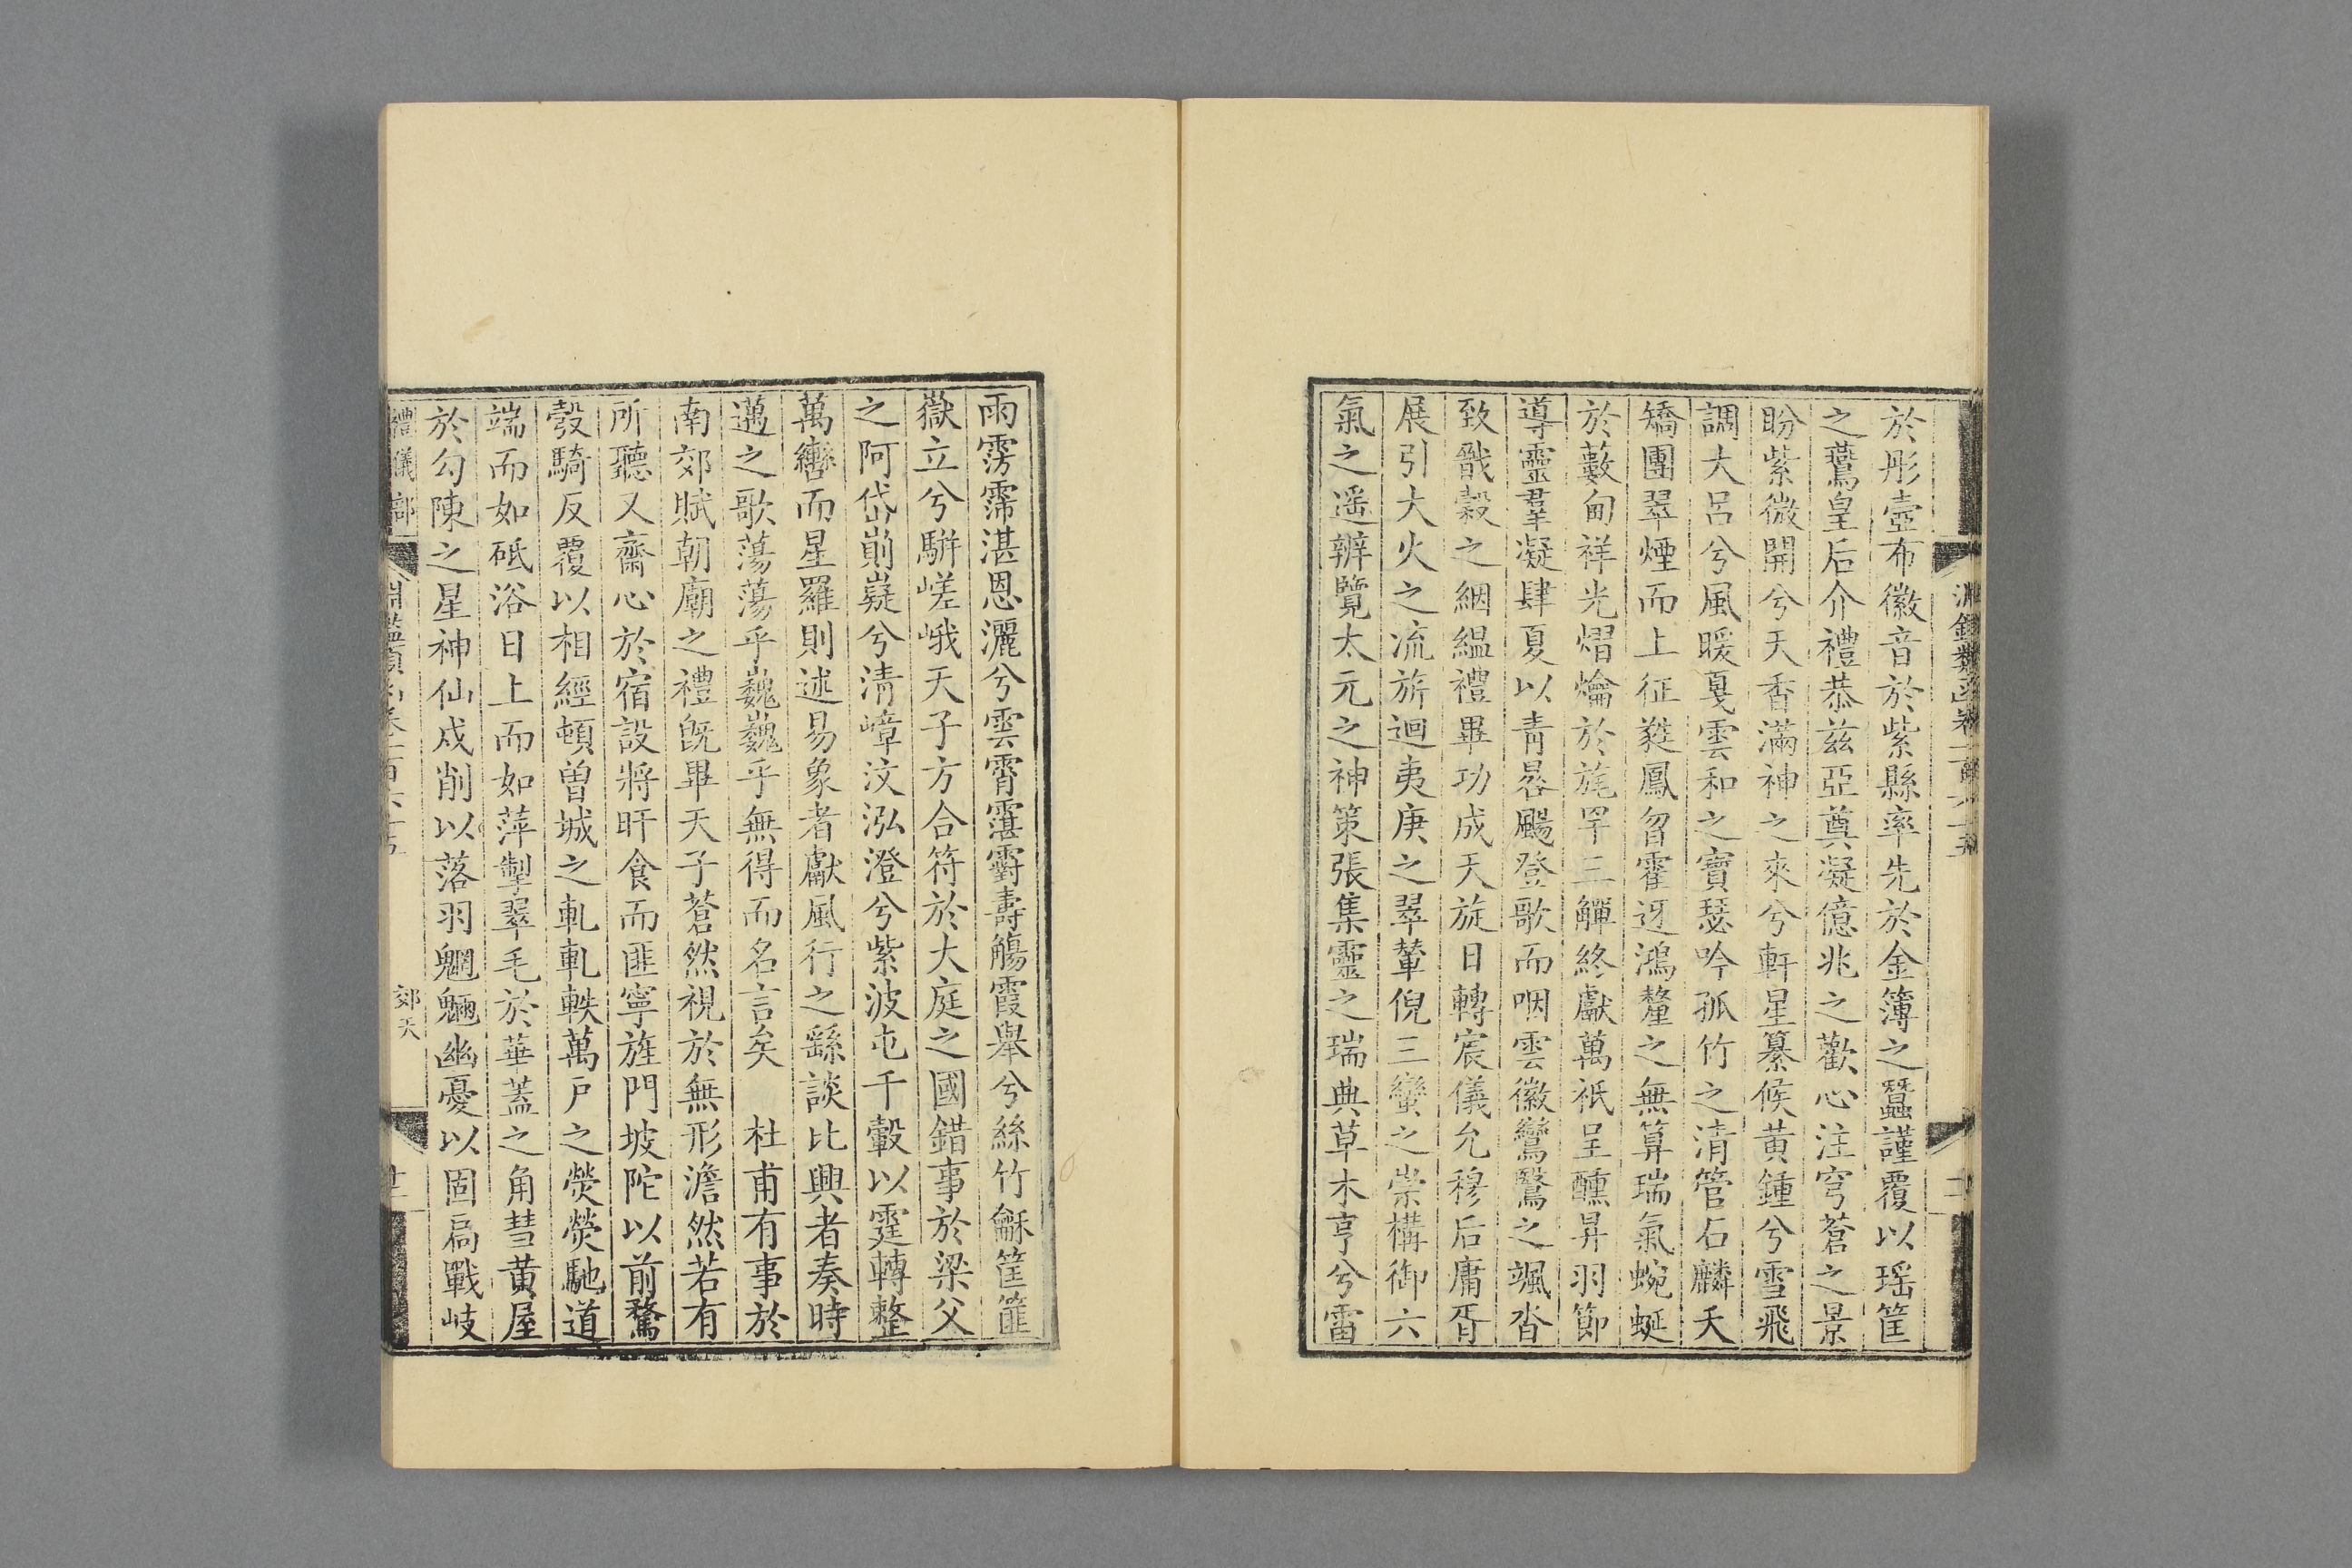 於彤壺布徽音於紫縣率先於金簿之蠶謹覆以瑶筐
之鷰皇后介禮恭兹亞奠凝億兆之歡心注穹蒼之景
盼紫微開兮天香滿神之來兮軒星纂候黄鍾兮雪飛
調大呂兮風暖戛雲和之寶瑟吟孤竹之清管石麟夭
矯團翠煙而上征蕤鳳㫚霍迓鴻釐之無算瑞氣蜿蜒
於藪甸祥光熠爚於旄罕三觶終獻萬祇呈醺昇羽節
導靈羣凝肆夏以青晷颺登歌而咽雲徽鸞鷖之颯沓
致戩穀之絪縕禮畢功成天旋日轉宸儀允穆后庸胥
展引大火之流旂迴夷庚之翠輦倪三巒之崇構御六
氣之遥辨覽太元之神策張集靈之瑞典草木亨兮雷
雨霶霈湛恩灑兮雲霄霮䨴壽觴霞舉兮絲竹龢筐篚
嶽立兮駢嵯峨天子方合符於大庭之國錯事於梁父
之阿岱崱嶷兮清嶂汶泓澄兮紫波屯千轂以霆轉整
萬轡而星羅則述易象者獻風行之繇談比興者奏時
邁之歌蕩蕩乎巍巍乎無得而名言矣　杜甫有事於
南郊賦朝廟之禮既畢天子蒼然視於無形澹然若有
所聽又齋心於宿設將旰食而匪寧旌門坡陀以前騖
彀騎反覆以相經頓曽城之軋軋軼萬戸之熒熒馳道
端而如砥浴日上而如萍掣翠旄於華蓋之角彗黄屋
於勾陳之星神仙戍削以落羽魍魎幽憂以固扃戰岐
禮儀部
郊天